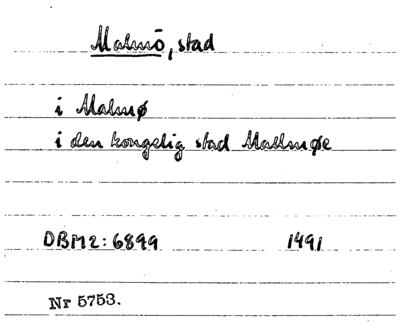 Malmö, stad
i Malmø
i den kongelig stad Mallmøe
DBM2: 6899 1491
Nr 5753.